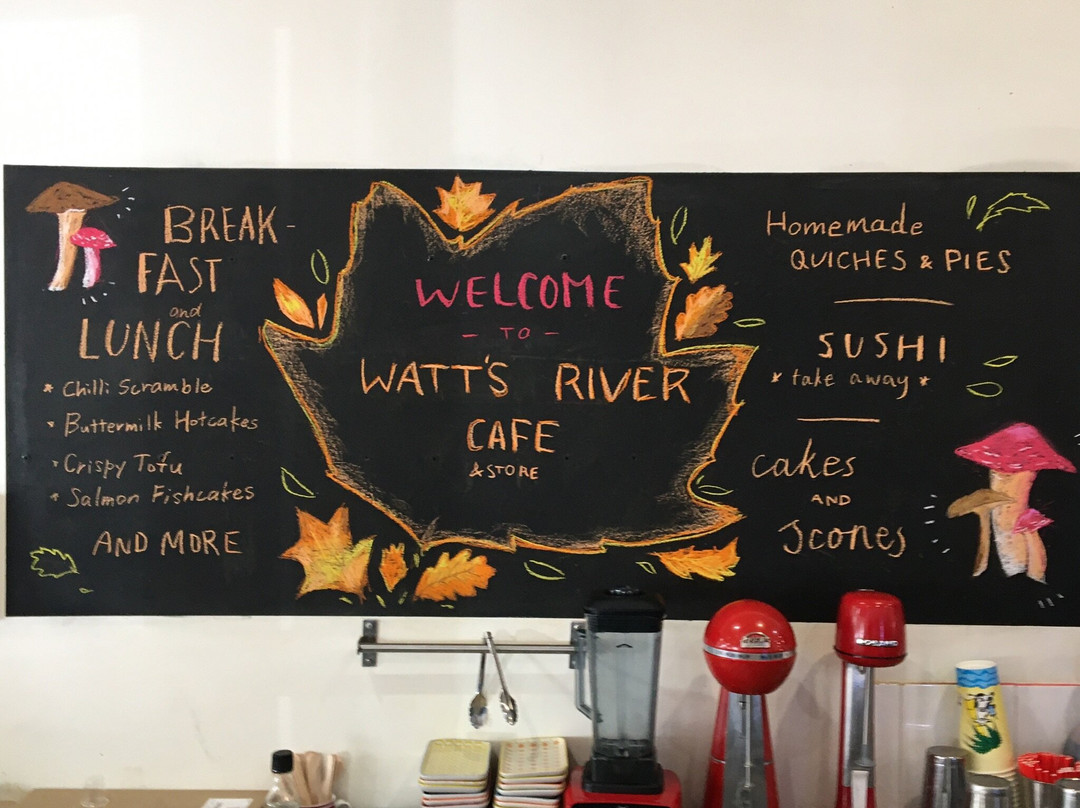 BREAK-
FAST
and
LUNCH
* Chilli Scramble
* Buttermilk Hotcakes
* Crispy Tofu
* Salmon Fishcakes
AND MORE
WELCOME
- TO -
WATT'S RIVER
CAFE
& STORE
Homemade
QUICHES & PIES
SUSHI
* take away *
cakes
AND
Scones